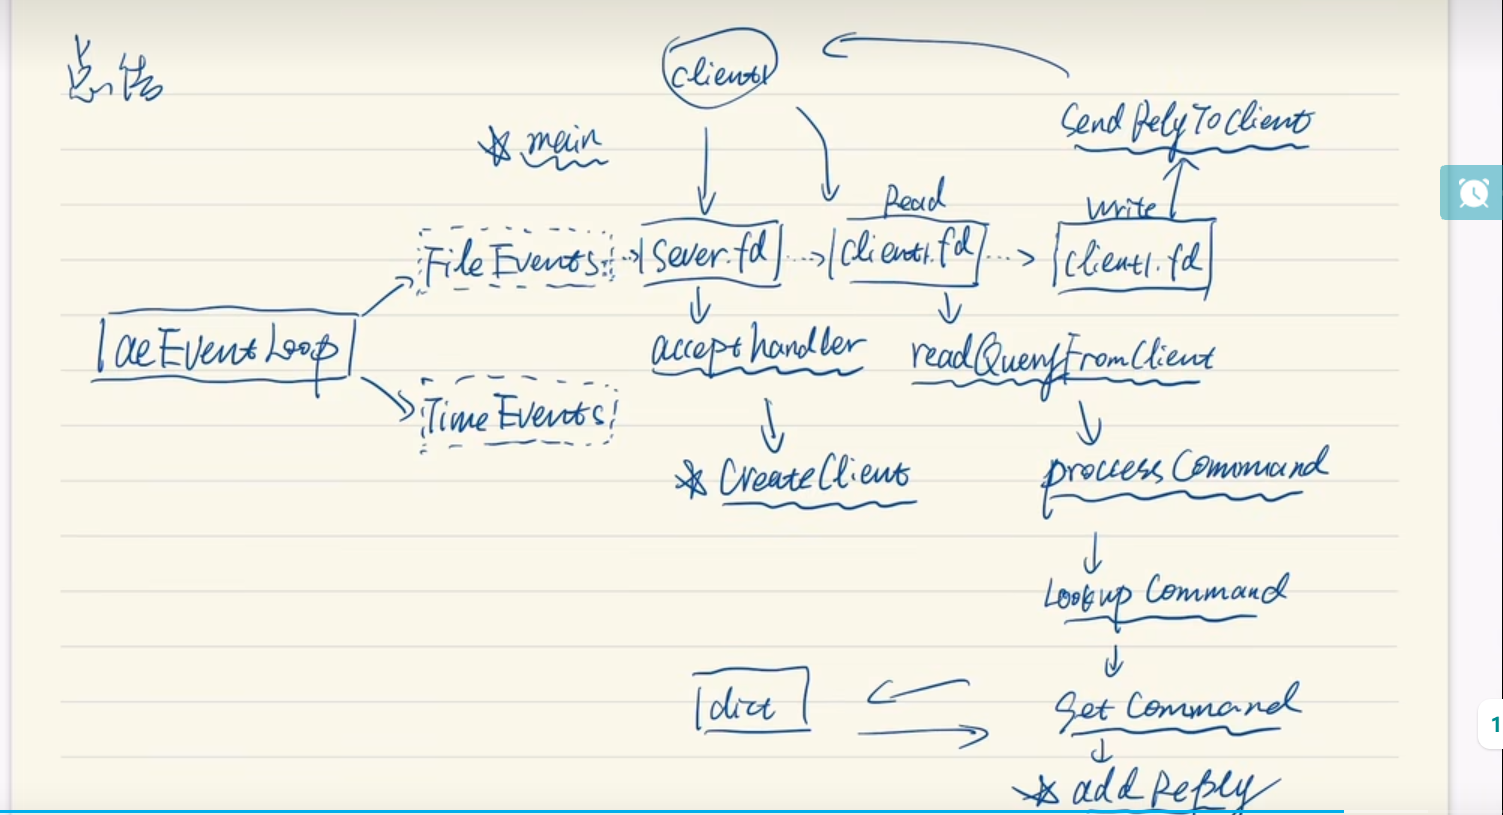 总结
client1
Send Rely To Client
main
Read
write
File Events
Sever.fd
Client1.fd
Client1.fd
aeEventLoop
accept handler
readQueryFromClient
Time Events
Create Client
process Command
Lookup Command
dict
get Command
add Reply
1